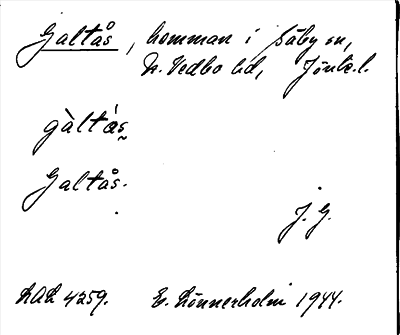 Galtås, hemman i Säby sn,
N. Vedbo hd, Jönk. l.
gàltás
Galtås.
J. G.
LAL 4259. E. Lönnerholm 1944.